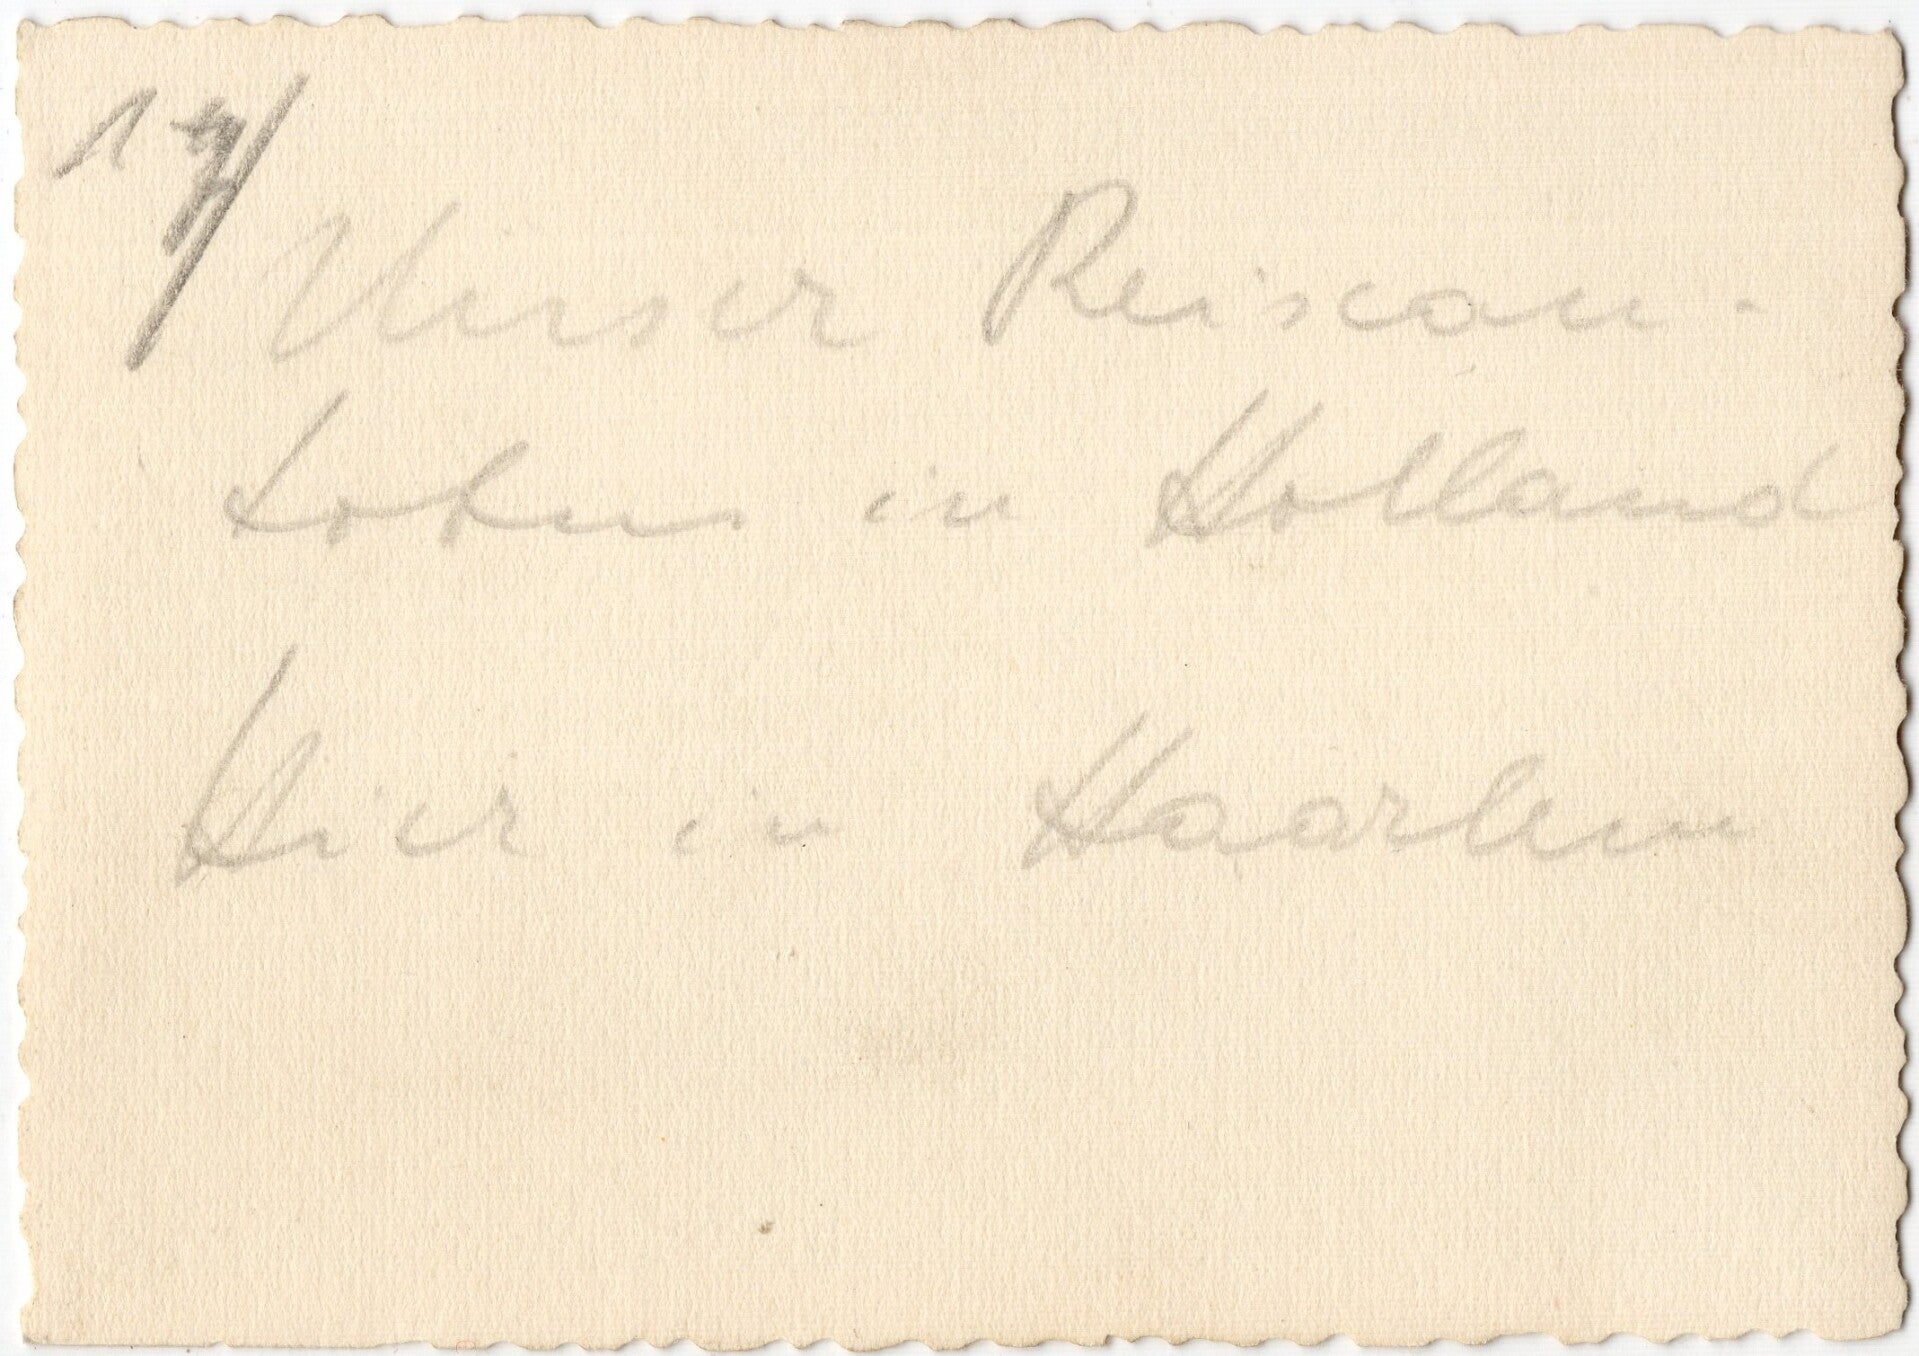 17/
Unser Reiseau-
tobus in Holland
Hier in Haarlem